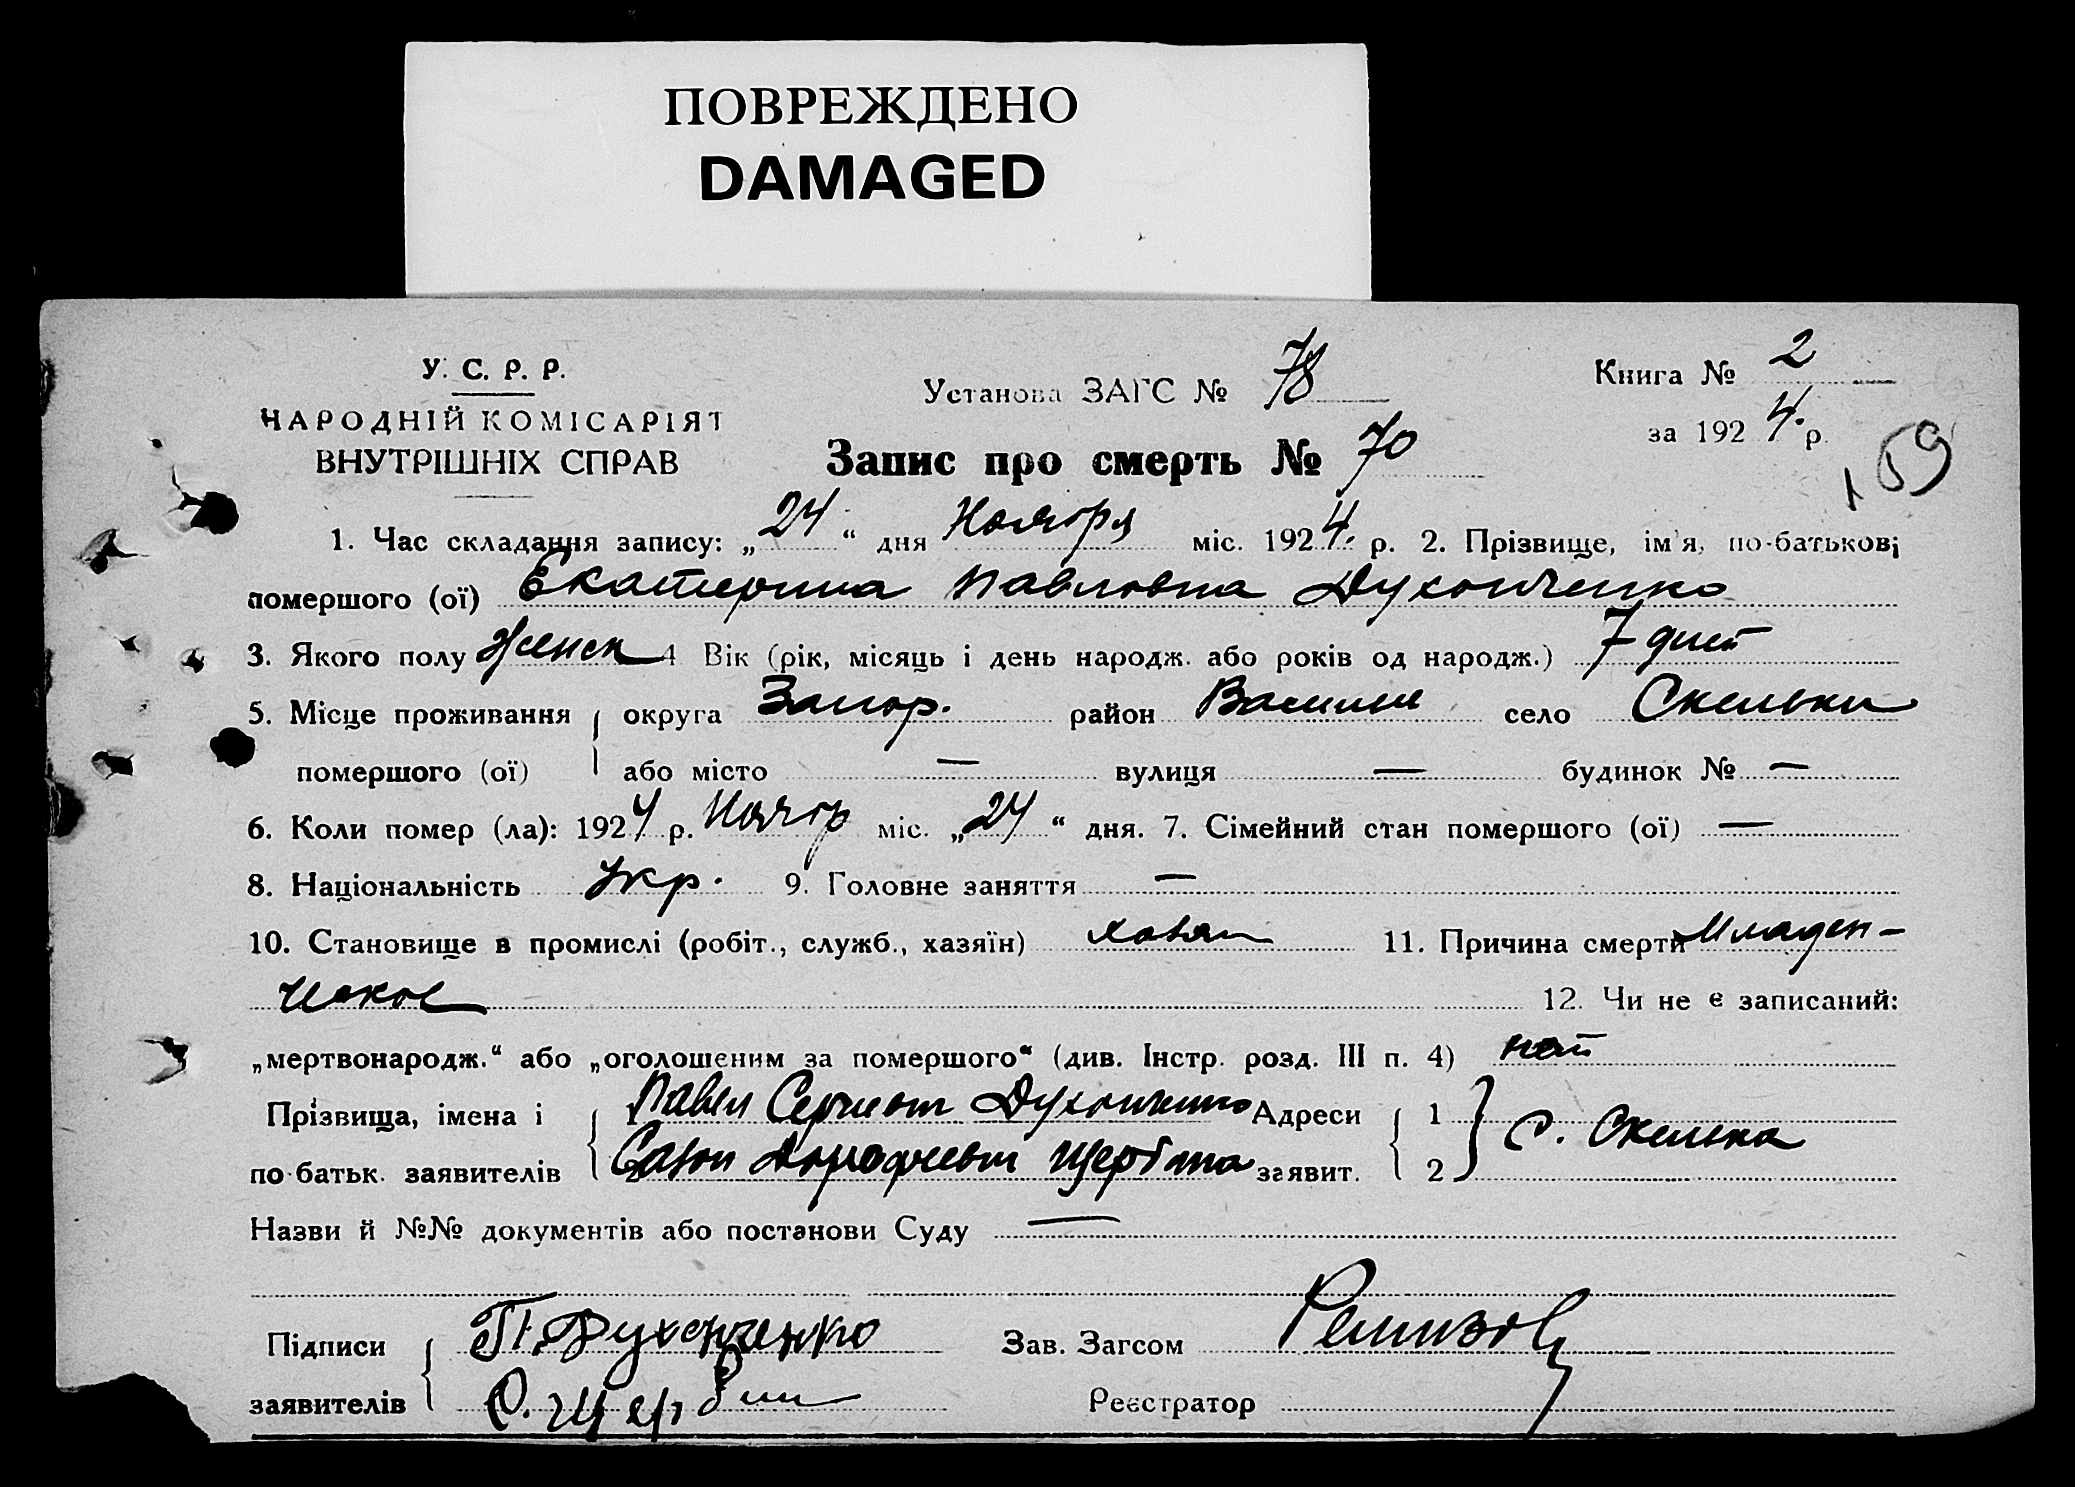 ПОВРЕЖДЕНО
DAMAGED
У. С. Р. Р.
НАРОДНІЙ КОМІСАРІЯТ
ВНУТРІШНІХ СПРАВ
Установа ЗАГС № 78
Книга № 2
за 1924. р.
159
Запис про смерть № 70
1. Час складання запису: „24“ дня Ноября міс. 1924. р. 2. Прізвище, ім'я, по-батькові
помершого (ої) Екатерина Павловна Духонченко
3. Якого полу Женск 4 Вік (рік, місяць і день народж. або років од народж.) 7 дней
5. Місце проживання округа Запор. район Васильев село Скельки
помершого (ої) або місто — вулиця — будинок № —
6. Коли помер (ла): 1924 р. Ноябр міс. „24“ дня. 7. Сімейний стан помершого (ої) —
8. Національність Укр. 9. Головне заняття —
10. Становище в промислі (робіт., служб., хазяїн) 11. Причина смерти Младен-
ческое 12. Чи не є записаний:
„мертвонародж.“ або „оголошеним за помершого“ (див. Інстр. розд. III п. 4) нет
Прізвища, імена і 1 Павел Сергеевич Духонченко Адреси 1 с. Скелька
по-батьк. заявителів 2 Сазон Дорофеевич Щербина заявит. 2
Назви й №№ документів або постанови Суду —
Підписи П. Духонченко Зав. Загсом Ремизов
заявителів С. Щербин Реєстратор